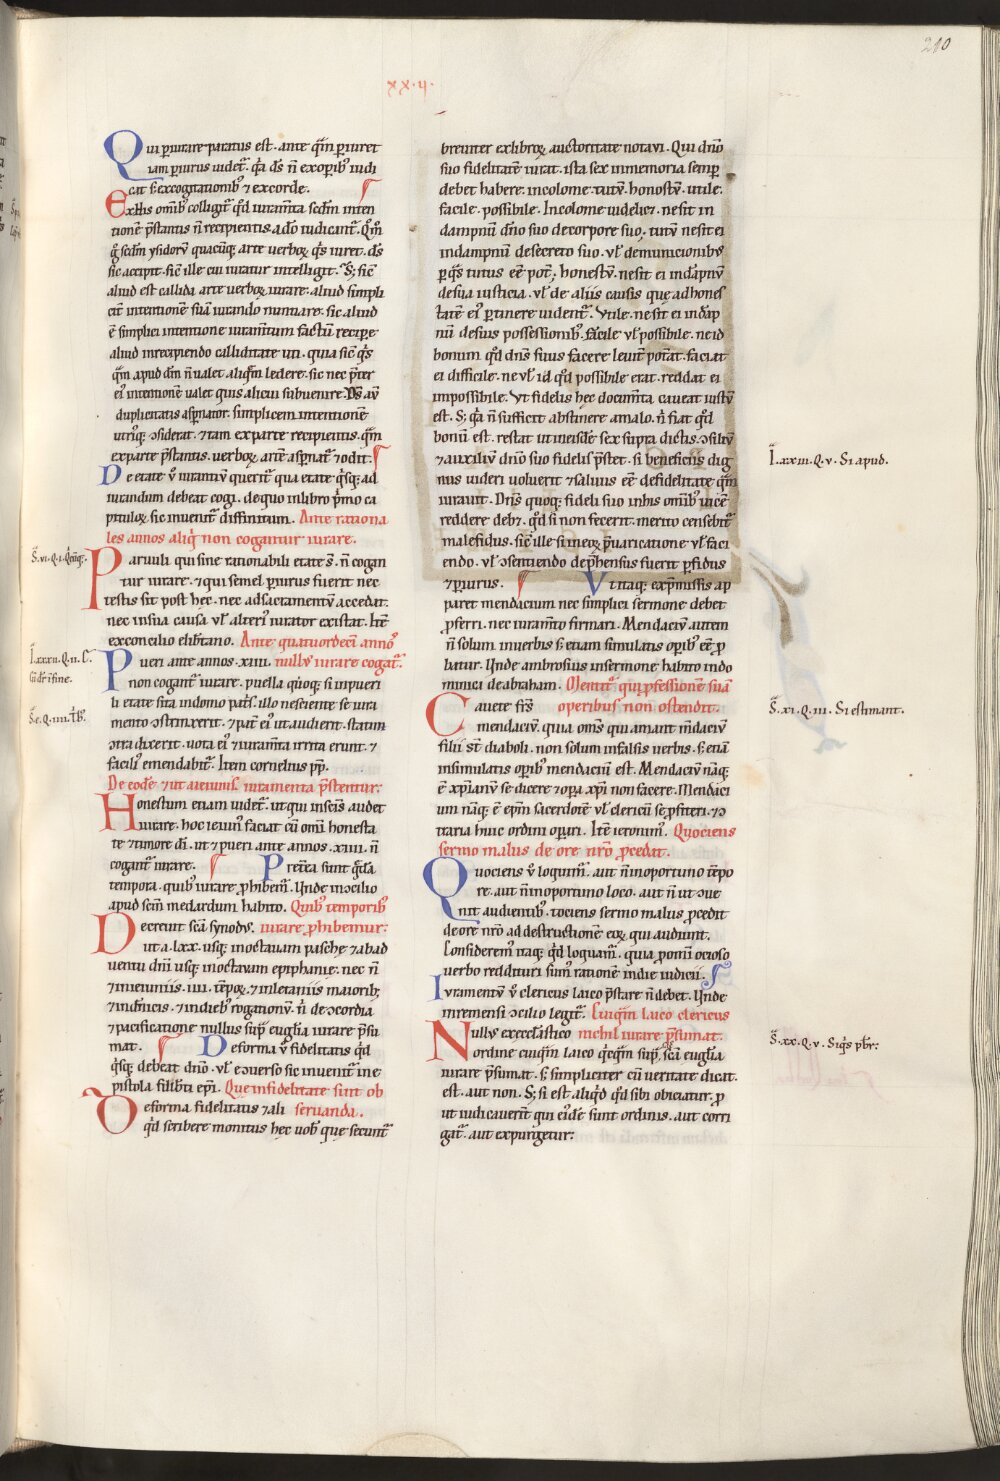 210
xx·q·
Qui piurare paratus est. ante qm̄ piuret
iam piurus uidet᷑. qa dš n̄ ex opib; iudi
cat s; excogitationib; ⁊ excorde.
Ex his omib; colligit᷑ qd iuram̄ta scdm inten
tionē p̄stantis n̄ recipientis a dō iudicant᷑. Qm̄
q̊ scdm ysidorv̄ quacūq; arte verboꝝ q̄s iuret. dš
sic accipit. sic̄ ille cui iuratur intelligit. S; sic̄
aliud est callida arte verboꝝ iurare. aliud simpli
cit̄ intentionē suā iurando nuntiare. sic aliud
ē simplici intentione iuram̄tum factū recipe
aliud in recipiendo calliditate uti. quia sic̄ q̄s
qm̄ apud dm̄ n̄ ualet aliqm̄ ledere. sic nec p̄ter
ei᷒ intentionē ualet quis alicui subuenire. Ds̄ aū
duplicitatis aspnator. simplicem intentionē
utriq; ↄsiderat. ⁊ tam ex parte recipientis. qm̄
ex parte p̄stantis. verboꝝ artē aspnat᷑ ⁊ odit.
De etate v̊ iurantiv̄ querit᷑ qua etate q̄sq; ad
iurandum debeat cogi. de quo in libro p̄mo ca
pituloꝝ sic inuenit᷑ diffinitum. Ante rationa
les annos aliq̄ non cogantur iurare.
Paruuli qui sine rationabili etate s̄. n̄ cogan
tur iurare. ⁊ qui semel piurus fuerit nec
testis sit post hec. nec ad sacramentv̄ accedat.
nec in sua causa vl̄ alteri᷒ iurator existat. Itē
ex concilio elib̄tano. Ante quatuordecī anno᷒
Pueri ante annos .xiiii. nullus iurare cogat᷑.
non cogant᷑ iurare. puella quoq; si in pueri
li etate sita in domo pat̄s. illo nesciente se iura
mento ↄstrinxerit. ⁊ pat̄ ei᷒ ut audierit. statim
ↄtradixerit. uota ei᷒ ⁊ iuram̄ta irrita erunt. ⁊
facili᷒ emendabit᷑. Item cornelius pp̄.
De eodē ⁊ ut a ieiunis iuramenta p̄stentur:
Honestum etiam uidet᷑. ut qui in scīs audet
iurare. hoc ieiun᷒ faciat cū omi honesta
te ⁊ timore di. ut ⁊ pueri ante annos .xiiii. n̄
cogant᷑ iurare. Preterea sunt q̄dā
tempora. quib᷒ iurare ꝓhibem᷑. Unde in ↄcilio
apud scm̄ medardum habito. Quib᷒ temporib᷒
Decreuit scā synod᷒. iurare ꝓhibemur:
ut a .lxx. usq; in octauam pasche ⁊ ab ad
uentu dn̄i usq; in octauam epiphanie. nec n̄
⁊ in ieiuniis .iiii. tēpoꝝ. ⁊ in letaniis maiorib;
⁊ in dn̄icis. ⁊ in dieb᷒ rogationv̄. n̄ de ↄcordia
⁊ pacificatione nullus sup̄ euglia iurare p̄su
mat. De forma v̊ fidelitatis qd
q̄sq; debeat dn̄o. vl̄ e ↄuerso sic inuenit᷑ in e
pistola filib̄ti ep̄i. Que in fidelitate sint ob
De forma fidelitatis ⁊ ali seruanda.
qd scribere monitus hec uob᷒ que secunt᷑
breuiter ex libroꝝ auctoritate notaui. Qui dn̄o
suo fidelitatē iurat. ista sex in memoria semp
debet habere. incolome. tutv̄. honestv̄. utile.
facile. possibile. Incolome uidelicꝫ. ne sit in
dampnū dn̄o suo de corpore suo. tutv̄ ne sit ei
in dampnū de secreto suo. vl̄ de municionibs
p q̄s tutus eē pot̄. honestv̄. ne sit ei in dāpnv̄
de sua iusticia. vl̄ de aliis causis que ad hones
tatē ei᷒ ptinere uident᷑. Vtile. ne sit ei in dāp
nū de suis possessionib᷒. facile vl̄ possibile. ne id
bonum qd dn̄s suus facere leuit̄ potat. faciat
ei difficile. ne vl̄ id qd possibile erat. reddat ei
impossibile. Vt fidelis hec docum̄ta caueat iustv̄
est. S; qa n̄ sufficit abstinere a malo. n̄ fiat qd
bonū est. restat ut in eisdē sex supra dictis. ↄsiliv̄
⁊ auxiliv̄ dn̄o suo fidelis p̄stet. si beneficio dig
nus uideri voluerit ⁊ saluus eē de fidelitate qm̄
iurauit. Dn̄s quoq; fideli suo in his omib᷒ uicē
reddere deb;. qd si non fecerit. merito censebit᷑
malefidus. sic̄ ille si in eoꝝ p̄uaricatione vl̄ faci
endo. vl̄ ↄsentiendo dep̄hensus fuerit pfidus
⁊ piurus. Vt itaq; ex p̄missis ap
paret mendacium nec simplici sermone debet
ꝓferri. nec iuram̄to firmari. Mendaciv̄ autem
n̄ solum in verbis s; etiam simulatis opib᷒ eē ꝓ
batur. Unde ambrosius in sermone habito in do
minici de abraham. Mentit᷑ qui ꝓfessionem suā
Cauete fr̄s operibus non ostendit.
mendaciv̄. quia om̄s qui amant m̄daciv̄
filii st̄ diaboli. non solum in falsis verbis. s; etiā
in simulatis opib᷒ mendaciū est. Mendaciv̄ naq;
ē xp̄ianv̄ se dicere ⁊ opa xp̄i non facere. Mendaci
um naq; ē ep̄m sacerdotē vl̄ clericū se ꝓfiteri. ⁊ ↄ
traria huic ordini opari. Itē ieronim᷒. Quociens
sermo malus de ore nr̄o ꝓcedit.
Quociens v̊ loquim᷑. aut n̄ in oportuno tēpo
re. aut n̄ in oportuno loco. aut n̄ ut ↄue
nit audientib᷒. tociens sermo malus ꝓcedit
de ore nr̄o ad destructionē eoꝝ qui audiunt.
Considerem᷒ itaq; qd loquam᷑. quia ꝓ omi ocioso
uerbo reddituri sum᷒ rationē in die iudicii.
Ivramentv̄ v̊ clericus laico p̄stare n̄ debet. Unde
in remensi ↄcilio legit᷑. Cuiqm̄ laico clericus
Nullus ex eccl̄astico nichil iurare p̄sumat.
ordine cuiqm̄ laico q̄cqm̄ sup̄ scā euglia
iurare p̄sumat. s; simpliciter cū veritate dicat.
est. aut non. S; si est aliqd qd sibi obiciatur. ꝓ
ut iudicauerit qui ei᷒dē sunt ordinis. aut corri
gat᷑. aut expurgetur:
S̄. vi. Q. i. Qicūq;.
I. xxxii. Q. ii. C̄.
S̄. e. Q. iiii.
I. xxiii. Q. v. Si apud.
S̄. xi. Q. iii. Si estimant.
S̄. xx. Q. v. Siq̄s pbr̄: